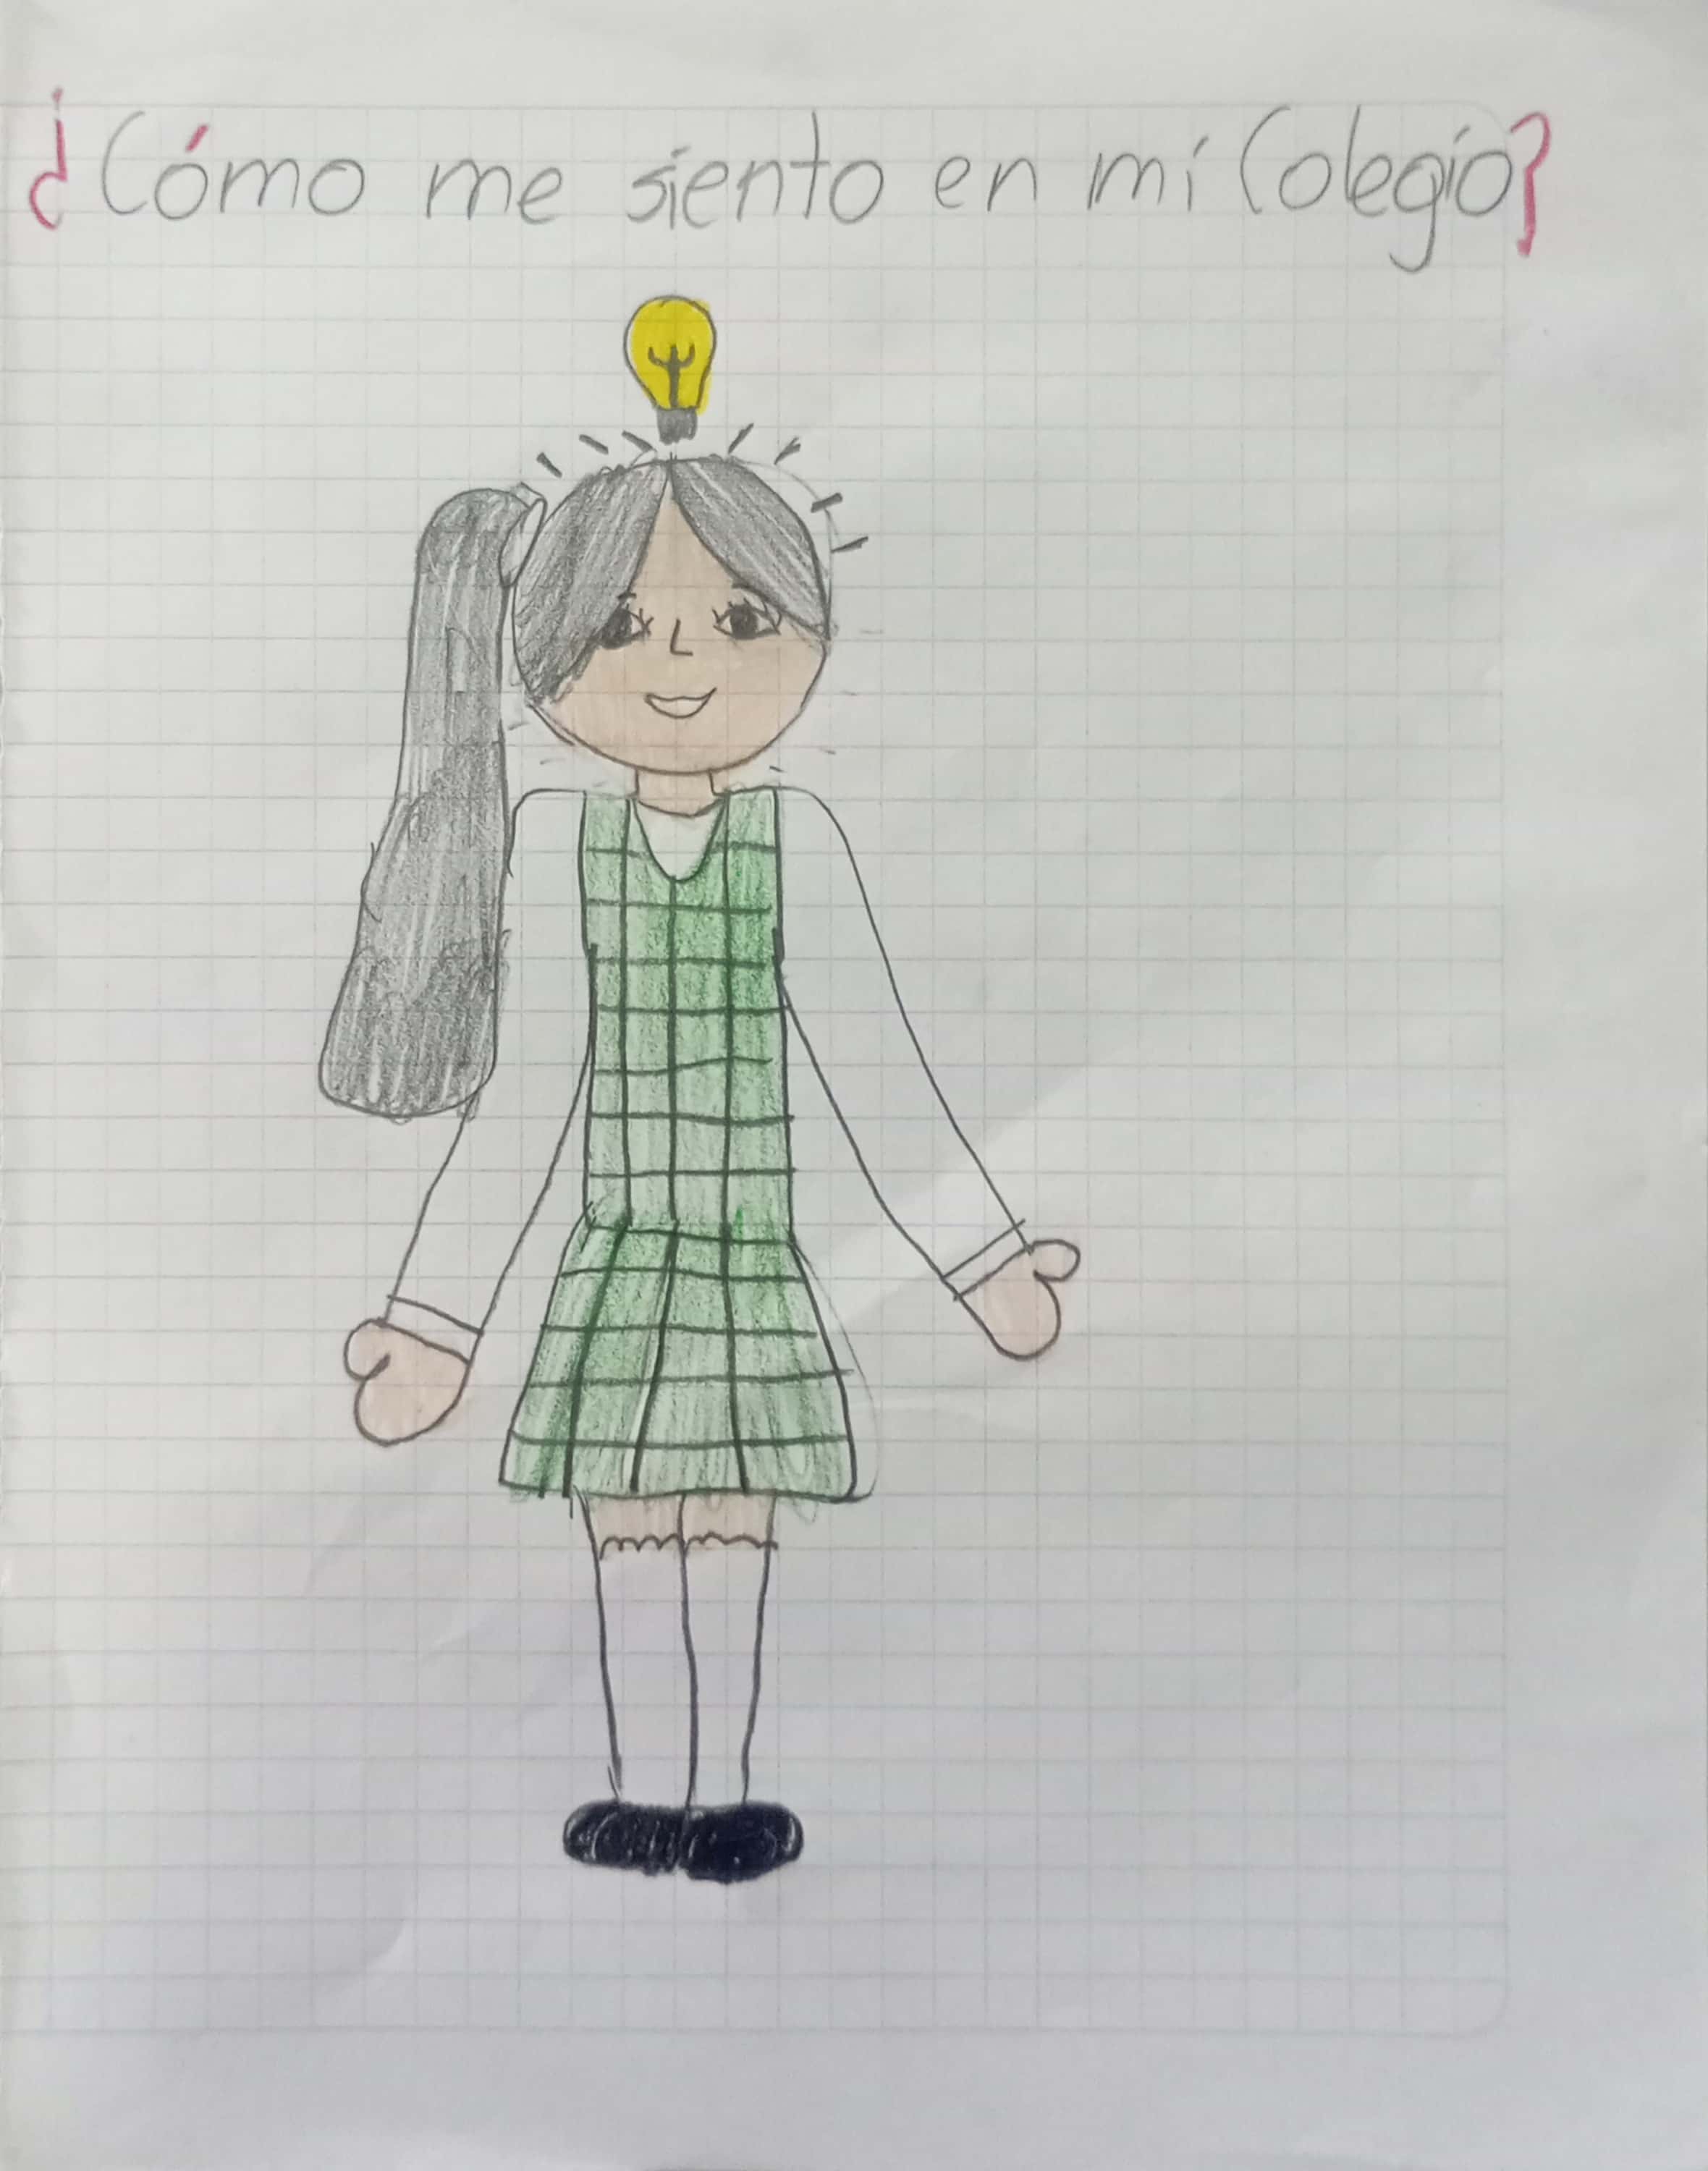 ¿Cómo me siento en mi Colegio?